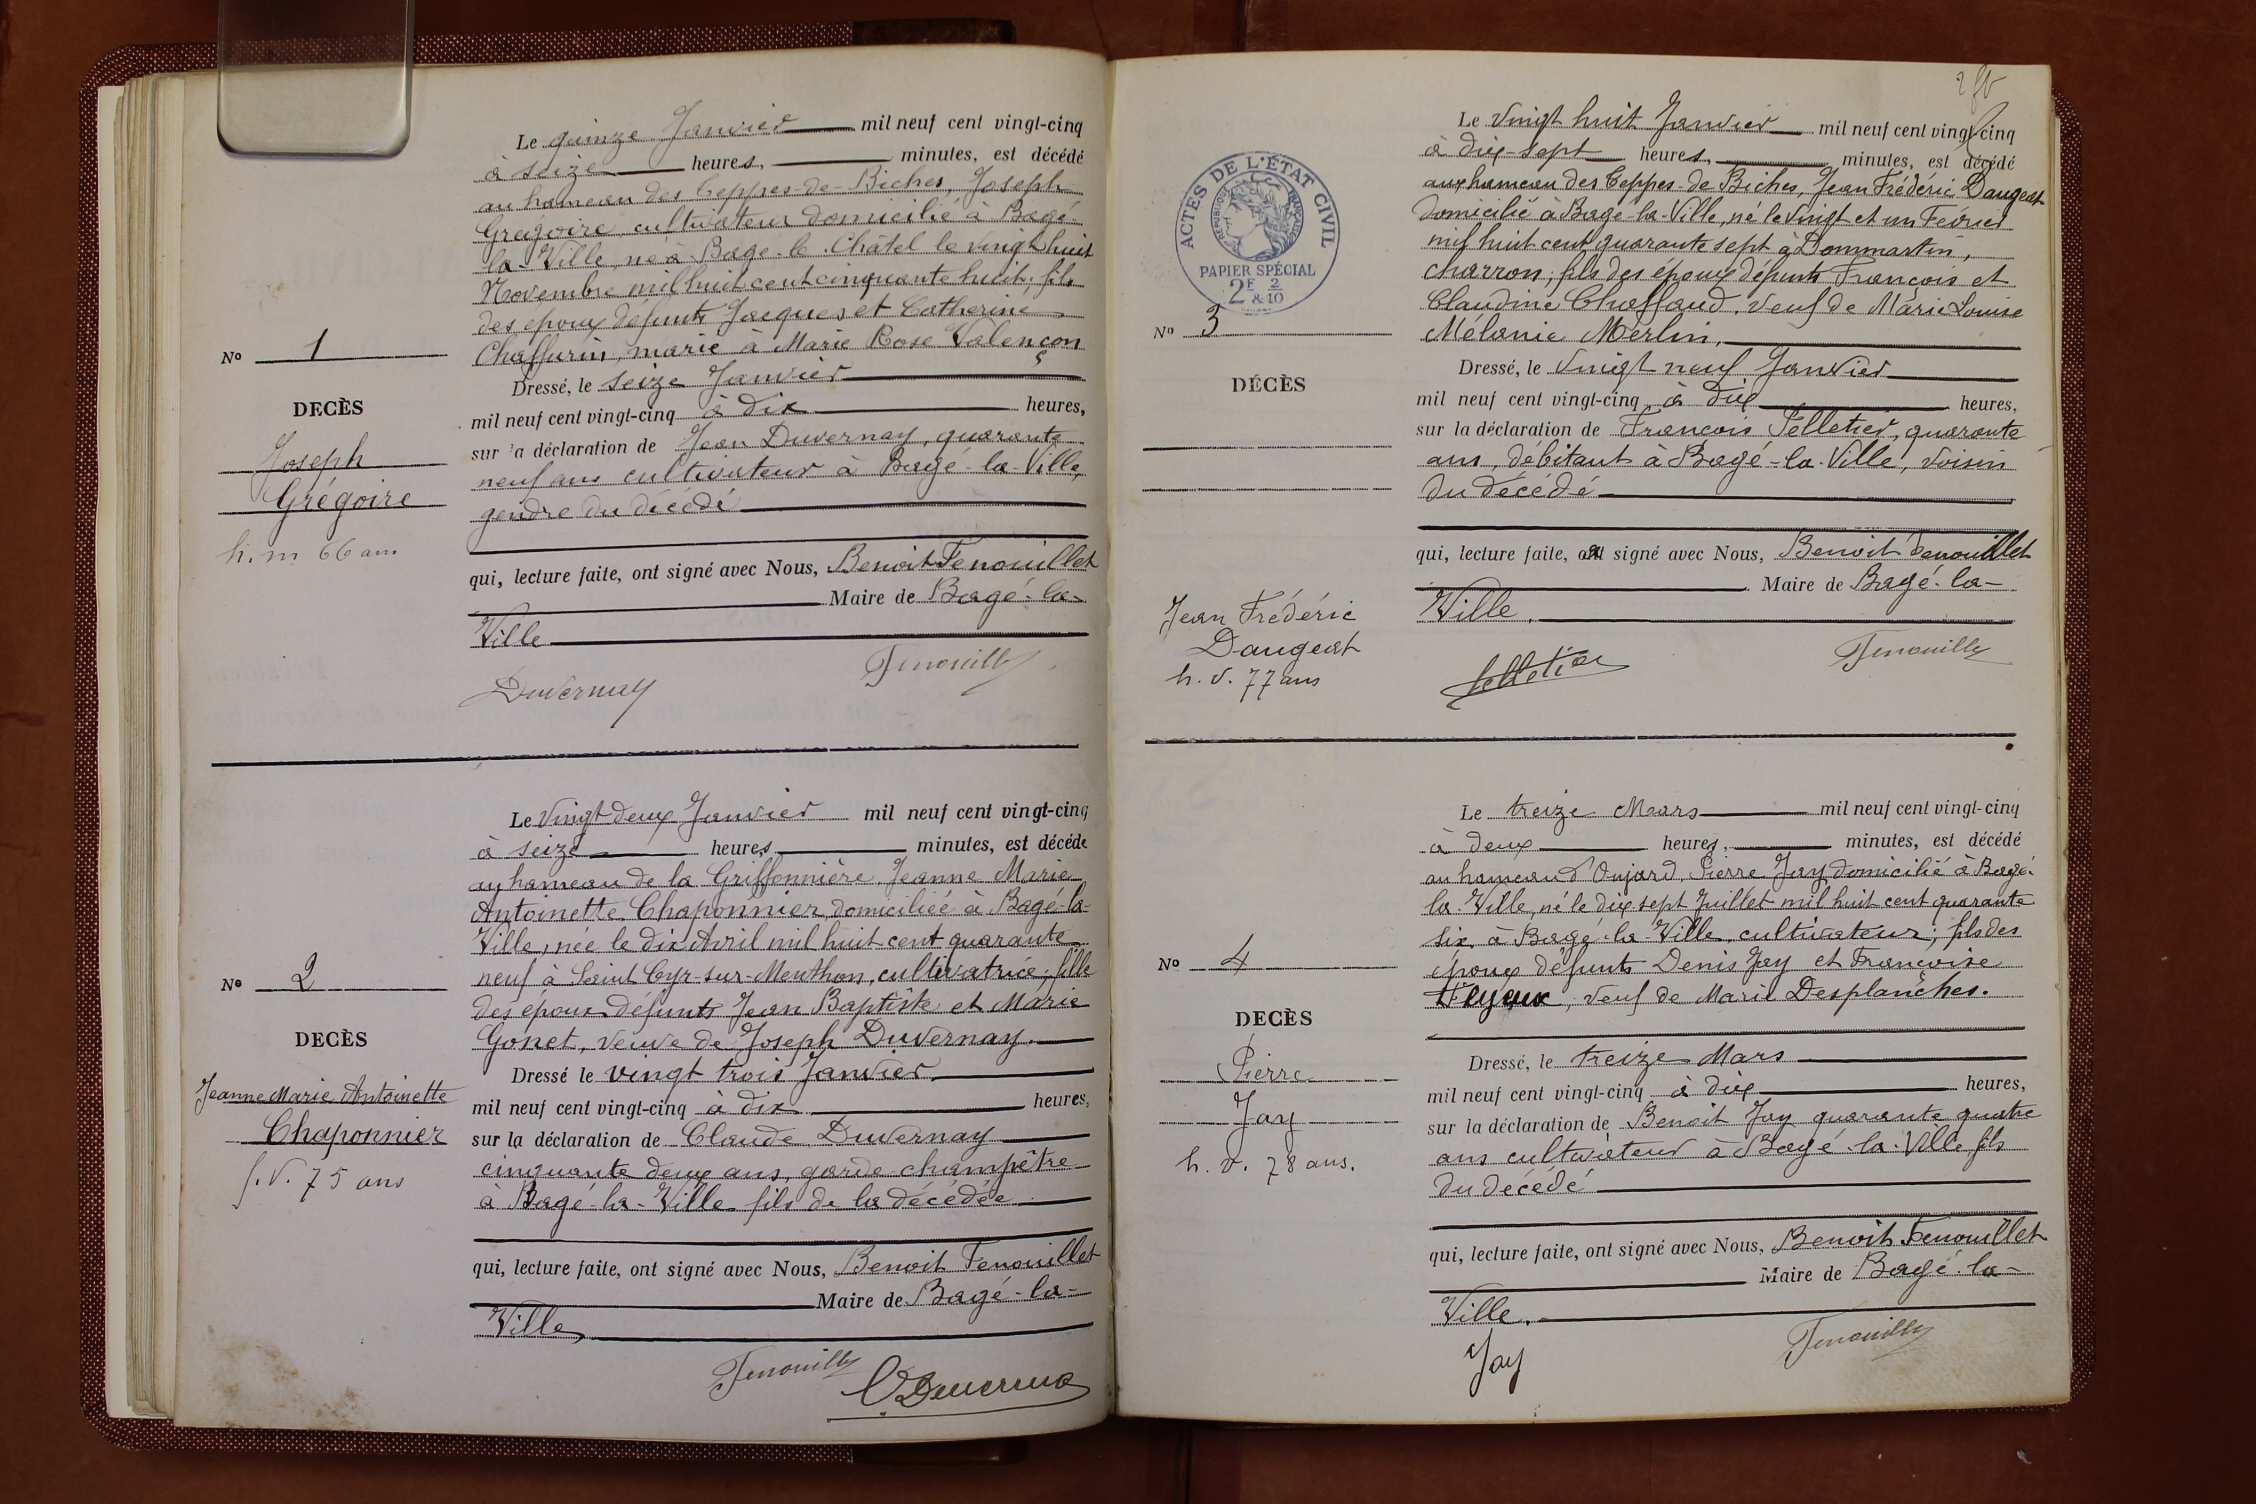 Le quinze Janvier mil neuf cent vingt-cinq
à seize heures, minutes, est décédé
au hameau des Ceppes-de-Biches, Joseph
Grégoire, cultivateur domicilié à Bagé-
la-Ville, né à Bagé-le-Châtel le vingt huit
Novembre mil huit cent cinquante huit, fils
des époux défunts Jacques et Catherine
Chaffurin, marié à Marie Rose Valençon
Dressé, le seize Janvier
mil neuf cent vingt-cinq à dix heures,
sur la déclaration de Jean Duvernay, quarante
neuf ans cultivateur à Bagé-la-Ville,
gendre du décédé
qui, lecture faite, ont signé avec Nous, Benoit Fenouillet
Maire de Bagé-la-
Ville
Duvernay
No 1
DECÈS
Joseph
Grégoire
h. m 66 ans
Le vingt deux Janvier mil neuf cent vingt-cinq
à seize heures minutes, est décédé
au hameau de la Griffonnière, Jeanne Marie
Antoinette Chaponnier, domiciliée à Bagé-la-
Ville, née le dix Avril mil huit cent quarante
neuf à Saint Cyr-sur-Menthon, cultivatrice, fille
des époux défunts Jean Baptiste et Marie
Gonet, veuve de Joseph Duvernay.
Dressé le vingt trois Janvier
mil neuf cent vingt-cinq à dix heures,
sur la déclaration de Claude Duvernay
cinquante deux ans, garde champêtre
à Bagé-la-Ville fils de la décédée
qui, lecture faite, ont signé avec Nous, Benoit Fenouillet
Maire de Bagé-la-
Ville,
No 2
DECÈS
Jeanne Marie Antoinette
Chaponnier
f. v. 75 ans
Le vingt huit Janvier mil neuf cent vingt-cinq
à dix-sept heures, minutes, est décédé
au hameau des Ceppes-de Biches, Jean Frédéric Daugeat
domicilié à Bagé-la-Ville, né le vingt et un Février
mil huit cent quarante sept à Dommartin,
charron, fils des époux défunts François et
Claudine Chaffaud, veuf de Marie Louise
Mélanie Merlin,
Dressé, le vingt neuf Janvier
mil neuf cent vingt-cinq à dix heures,
sur la déclaration de François Pelletier, quarante
ans, débitant à Bagé-la-Ville, voisin
du décédé
qui, lecture faite, ont signé avec Nous, Benoit Fenouillet
Maire de Bagé-la-
Ville.
Pelletier
ACTES DE L'ÉTAT CIVIL
RÉPUBLIQUE FRANÇAISE
PAPIER SPÉCIAL
2F 2
& 10
No 3
DÉCÈS
Jean Frédéric
Daugeat
h. v. 77 ans
Le treize Mars mil neuf cent vingt-cinq
à deux heures, minutes, est décédé
au hameau d'Oujard, Pierre Jay domicilié à Bagé-
la-Ville, né le dix sept Juillet mil huit cent quarante
six, à Bagé-la-Ville, cultivateur; fils des
époux défunts Denis Jay et Françoise
veuf de Marie Desplanches.
Dressé, le treize Mars
mil neuf cent vingt-cinq à dix heures,
sur la déclaration de Benoit Jay quarante quatre
ans cultivateur à Bagé-la-Ville fils
du décédé
qui, lecture faite, ont signé avec Nous, Benoit Fenouillet
Maire de Bagé-la-
Ville.
Jay
No 4
DECÈS
Pierre
Jay
h. v. 78 ans.